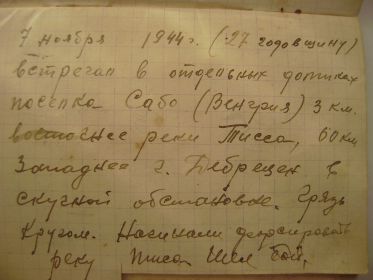 7 ноября 1944 г. (27 годовщину)
встречал в отдельных домиках
поселка Сабо (Венгрия) 3 км.
восточнее реки Тисса, 60 км
Западнее г. Дебрецен в
скучной обстановке. Грязь
кругом. Начинали форсировать
реку Тиса. Шел бой.